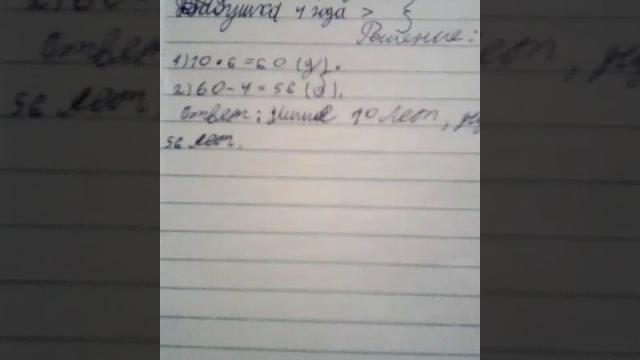 Бабушка 4 года > {
Решение:
1) 10 • 6 = 60 (д).
2) 60 - 4 = 56 (д).
Ответ: 10 лет,
56 лет.